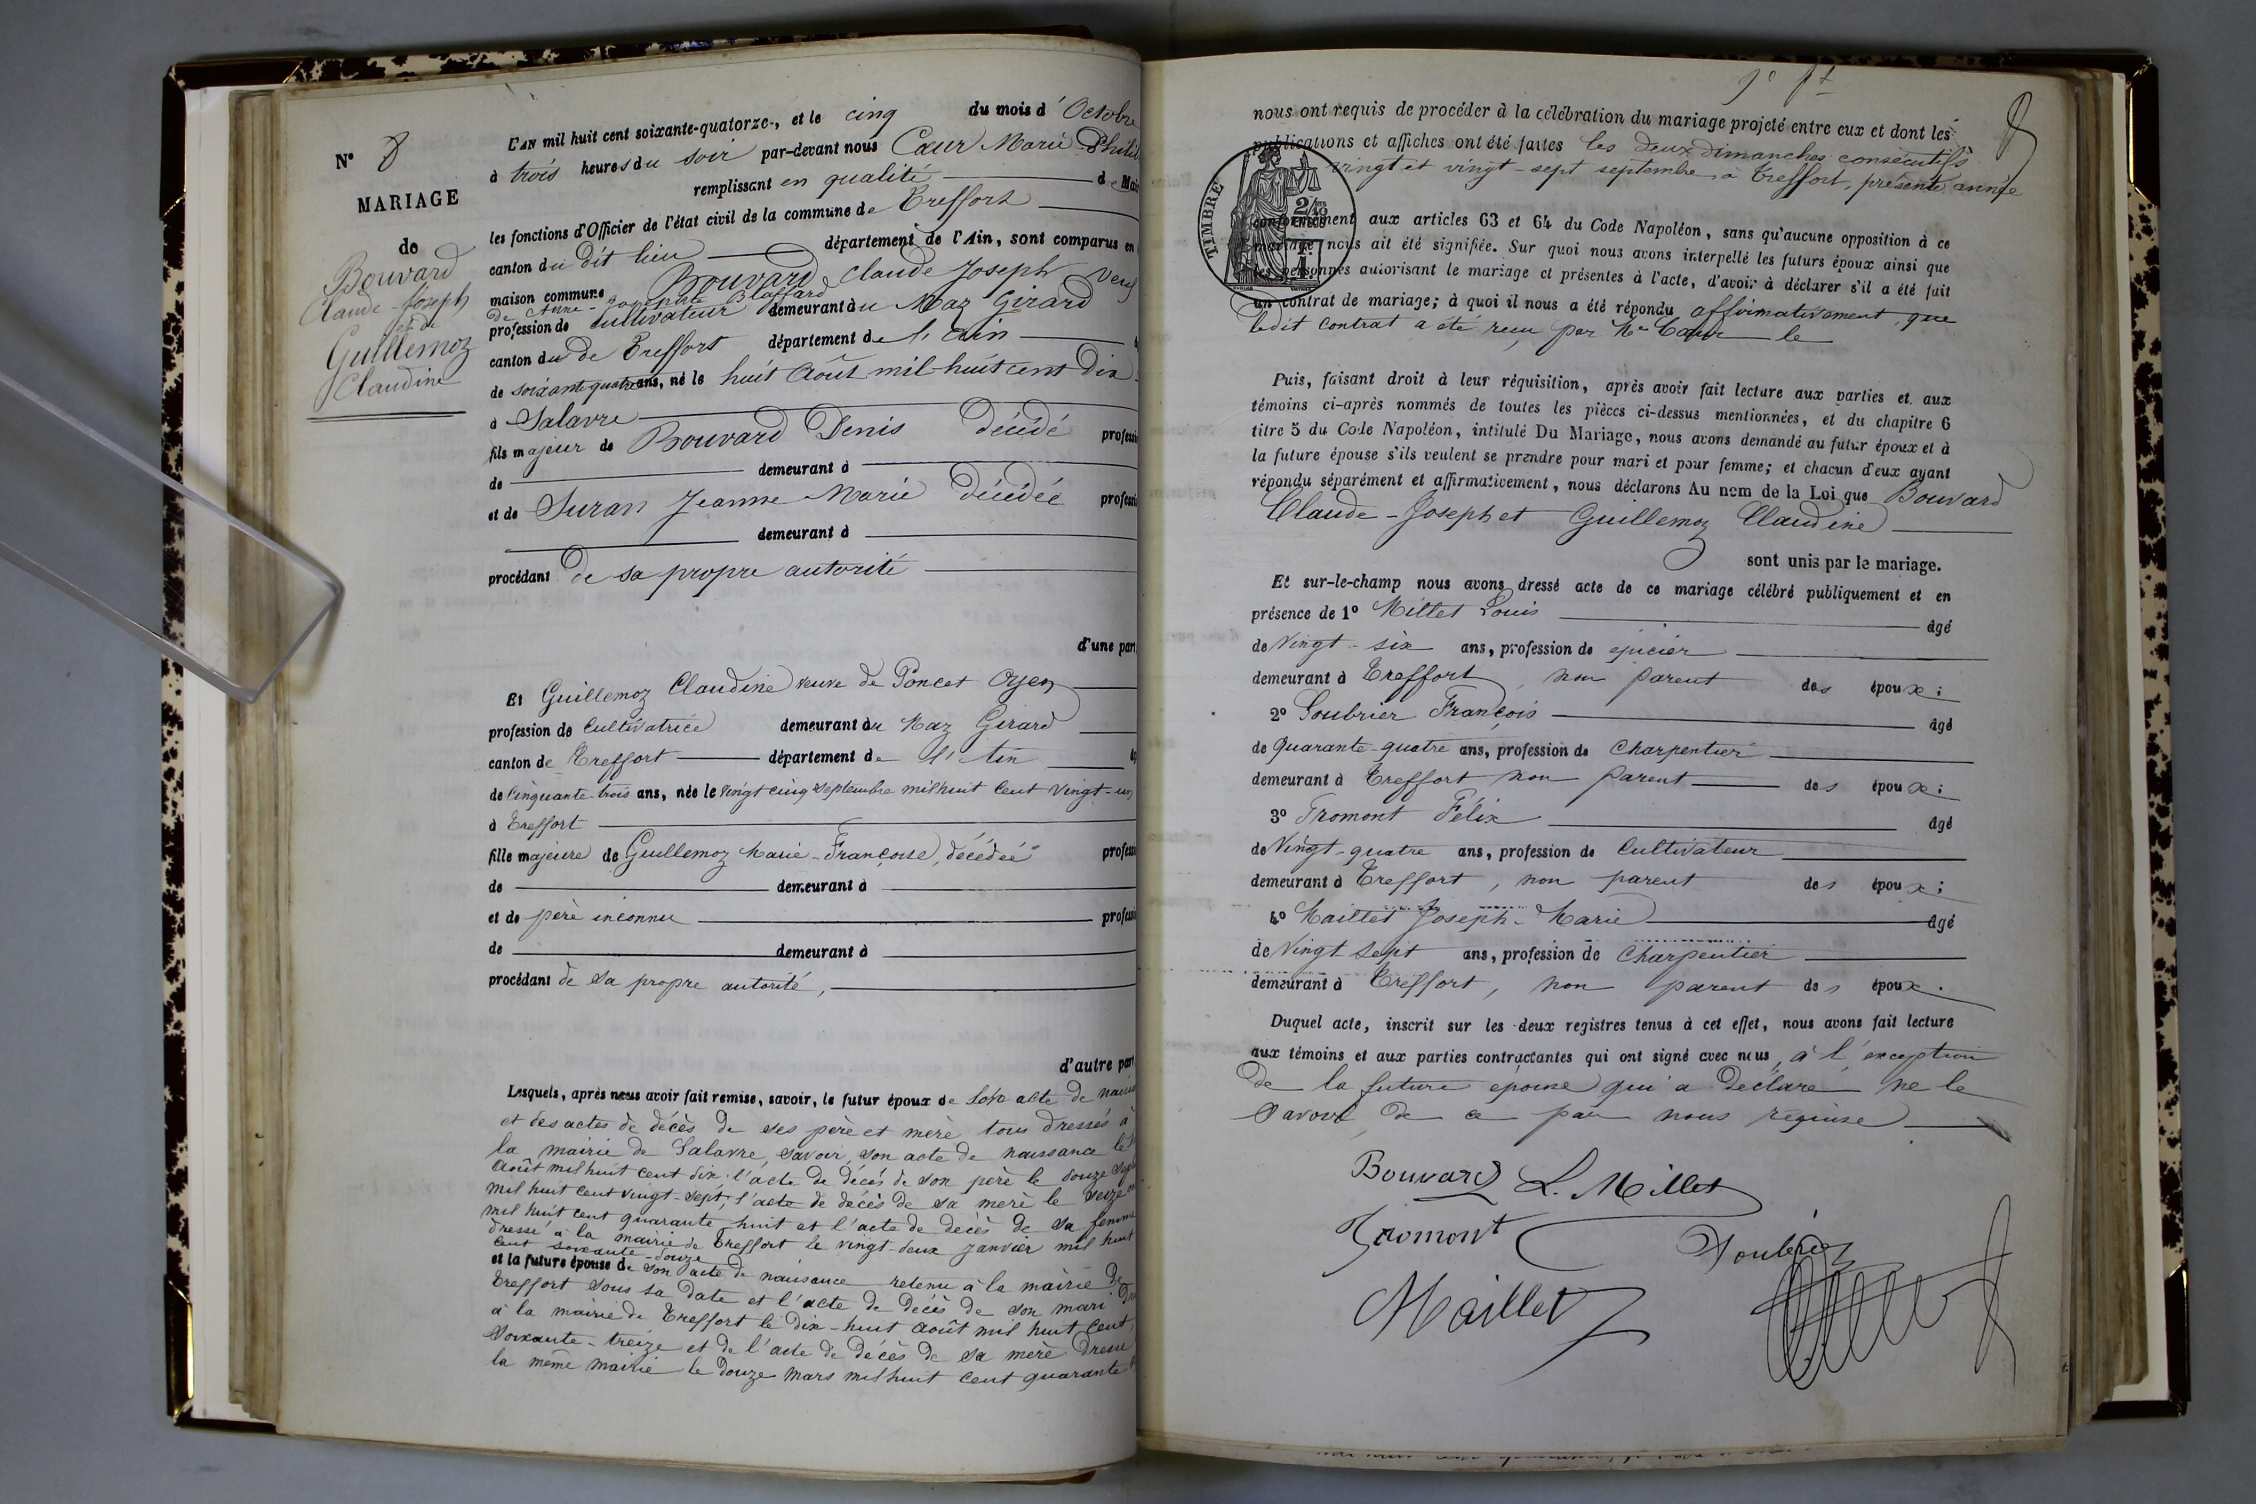 N° 8
MARIAGE
de
Bouvard
Claude-Joseph
et de
Guillemoz
Claudine
L'AN mil huit cent soixante-quatorze, et le cinq du mois d'Octobre
à trois heures du soir par-devant nous Cœur Marie
remplissant en qualité de
les fonctions d'Officier de l'état civil de la commune de Treffort
canton du dit lieu département de l'Ain, sont comparus en
maison commune Bouvard Claude Joseph veuf
de Anne Josephte
profession de Cultivateur demeurant au Maz Girard
canton du de Treffort département de l'Ain
de soixante quatre ans, né le huit Août mil-huit cent dix
à Salavre
fils majeur de Bouvard Denis décédé
de demeurant à
et de Suran Jeanne Marie décédée
demeurant à
procédant de sa propre autorité
d'une part
Et Guillemoz Claudine veuve de Poncet
profession de Cultivatrice demeurant au Maz Girard
canton de Treffort département de l'Ain
de Cinquante-trois ans, née le vingt cinq septembre mil huit cent vingt-un
à Treffort
fille majeure de Guillemoz Marie-Françoise, décédée
de demeurant à
et de père inconnu
de demeurant à
procédant de sa propre autorité,
d'autre part
Lesquels, après nous avoir fait remise, savoir, le futur époux de son acte de
et des actes de décès de ses père et mère tous dressés à
la mairie de Salavre, savoir, son acte de naissance le
Août mil huit cent dix; l'acte de décès de son père le douze
mil huit cent vingt-sept; l'acte de décès de sa mère le seize
mil huit cent quarante huit et l'acte de décès de sa femme
dressé à la mairie de Treffort le vingt-deux janvier mil huit
cent soixante-douze
et la future épouse de son acte de naissance retenu à la mairie de
Treffort sous sa date et l'acte de décès de son mari
à la mairie de Treffort le dix-huit août mil huit cent
soixante-treize et de l'acte de décès de sa mère dressé
la même mairie le douze mars mil huit cent quarante
nous ont requis de procéder à la célébration du mariage projeté entre eux et dont les
publications et affiches ont été faites les deux dimanches consécutifs
vingt et vingt-sept septembre à Treffort, présente année
conformément aux articles 63 et 64 du Code Napoléon, sans qu'aucune opposition à ce
mariage nous ait été signifiée. Sur quoi nous avons interpellé les futurs époux ainsi que
les personnes autorisant le mariage et présentes à l'acte, d'avoir à déclarer s'il a été fait
un contrat de mariage; à quoi il nous a été répondu affirmativement, que
ledit contrat a été reçu par Me Cœur le
TIMBRE
Puis, faisant droit à leur réquisition, après avoir fait lecture aux parties et aux
témoins ci-après nommés de toutes les pièces ci-dessus mentionnées, et du chapitre 6
titre 5 du Code Napoléon, intitulé Du Mariage, nous avons demandé au futur époux et à
la future épouse s'ils veulent se prendre pour mari et pour femme; et chacun d'eux ayant
répondu séparément et affirmativement, nous déclarons Au nom de la Loi que Bouvard
Claude-Joseph et Guillemoz Claudine
sont unis par le mariage.
Et sur-le-champ nous avons dressé acte de ce mariage célébré publiquement et en
présence de 1° Millet Louis âgé
de Vingt-six ans, profession de épicier
demeurant à Treffort, non parent des époux;
2° Soubrier François âgé
de Quarante-quatre ans, profession de Charpentier
demeurant à Treffort non parent des époux;
3° Fromont Félix âgé
de Vingt-quatre ans, profession de Cultivateur
demeurant à Treffort, non parent des époux;
4° Maillet Joseph-Marie âgé
de Vingt sept ans, profession de Charpentier
demeurant à Treffort, non parent des époux.
Duquel acte, inscrit sur les deux registres tenus à cet effet, nous avons fait lecture
aux témoins et aux parties contractantes qui ont signé avec nous, à l'exception
de la future épouse qui a déclaré ne le
savoir, de ce par nous requise
Bouvard L. Millet
Fromont
Soubrier
Maillet